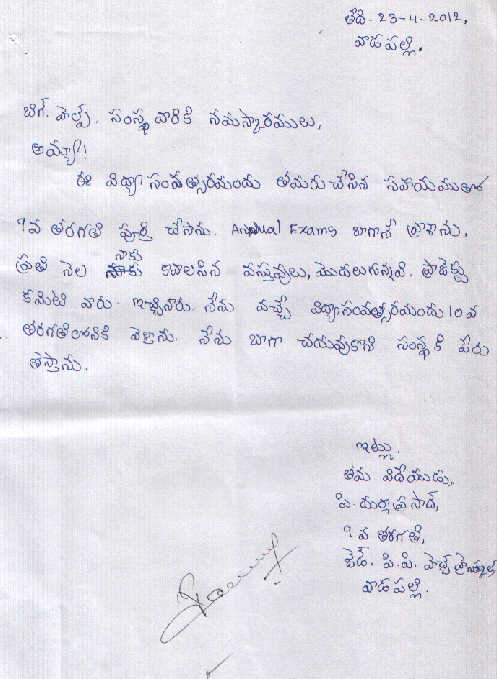 తేది. 23-4-2012,
వాడపల్లి.
బిగ్. హెల్ప్. సంస్థ వారికి నమస్కారములు,
అమ్మా!!
ఈ విద్యా సంవత్సరమందు తమరు చేసిన సహాయముతో
9వ తరగతి పూర్తి చేసాను. Annual Exams బాగానే వ్రాశాను,
ప్రతి నెల నాకు కావలసిన వస్తువులు, మొదలుగున్నవి. ప్రాజెక్టు
కమిటి వారు. ఇచ్చినారు. నేను వచ్చే విద్యాసంవత్సరమందు 10 వ
తరగతిలోనికి వెళ్తాను. నేను బాగా చదువుకొని సంస్థకి పేరు
తెస్తాను.
ఇట్లు.
తమ విదేయుడు,
పి. దుర్గాప్రసాద్,
9 వ తరగతి,
జెడ్. పి. పి. హైస్కూల్
వాడపల్లి.